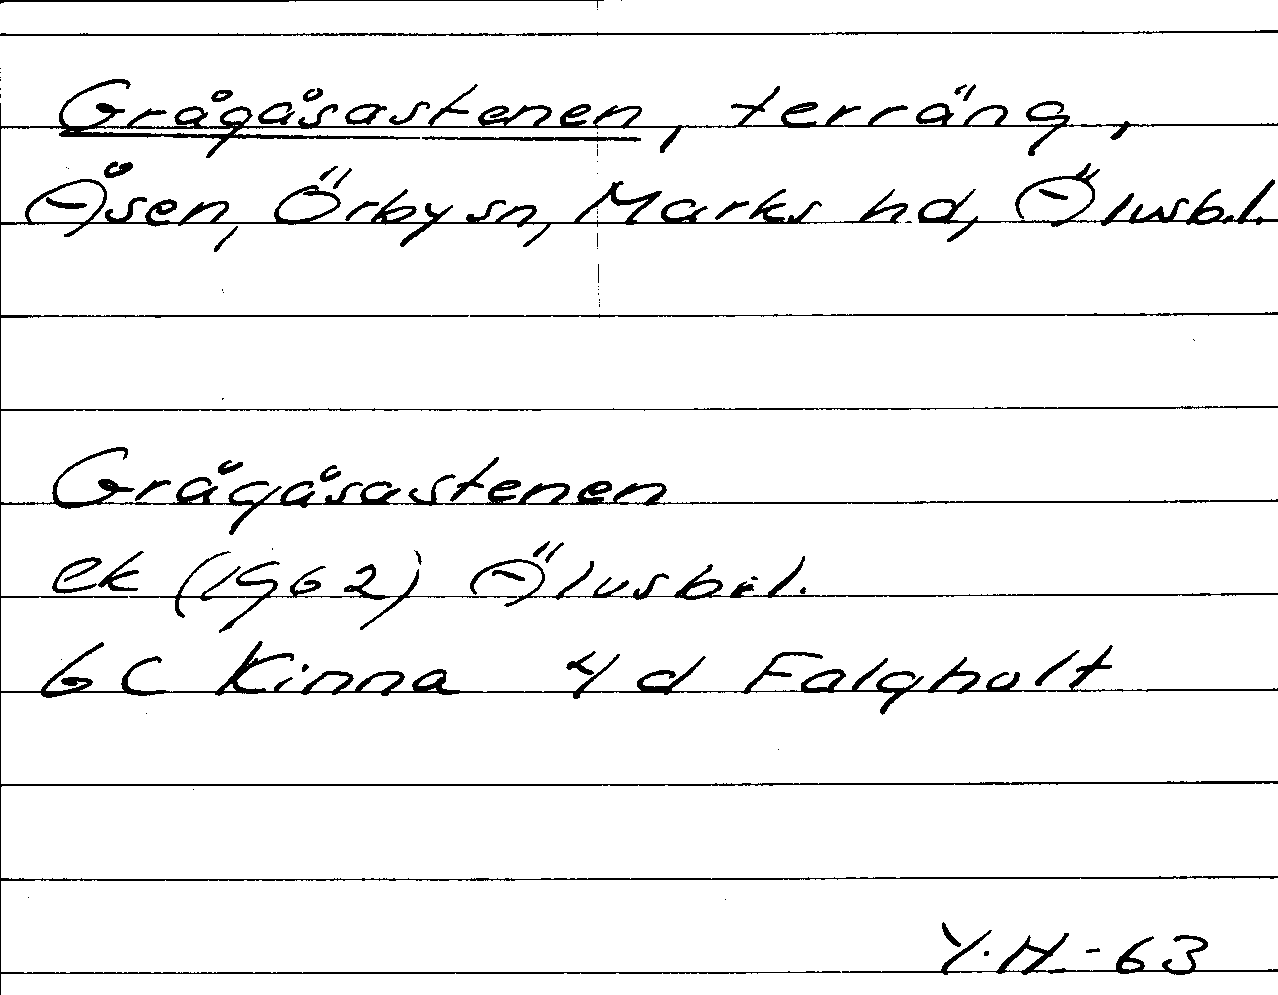 Grågåsastenen, terräng,
Åsen, Örby sn, Marks hd, Älvsb.l.
Grågåsastenen
ek (1962) Älvsb.l.
6C Kinna 4d Falgholt
Y.H.-63